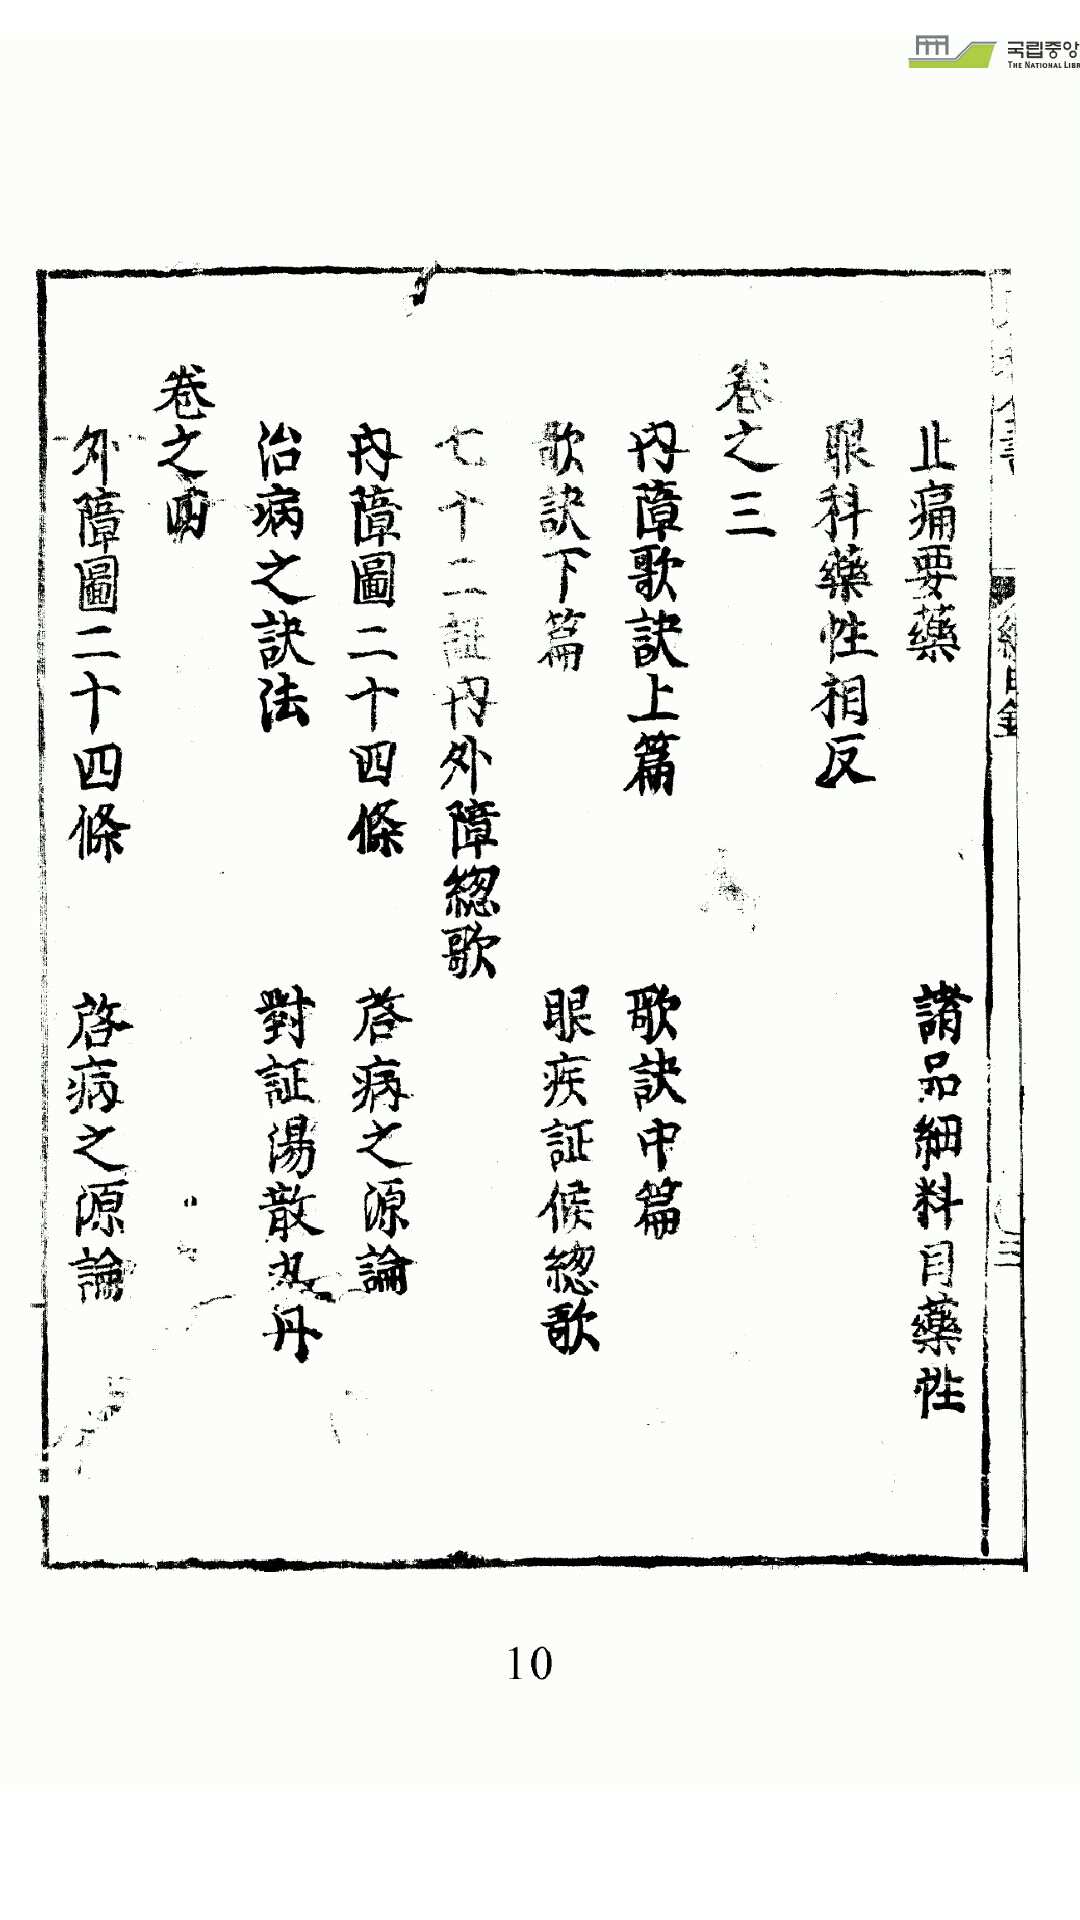 국립중앙
THE NATIONAL LIBR
止痛要藥 諸品細料目藥性
眼科藥性相反
卷之三
内障歌訣上篇 歌訣中篇
歌訣下篇 眼疾証候總歌
七十二証内外障總歌
内障圖二十四條 啓病之源論
治病之訣法 對証湯散丸丹
卷之四
外障圖二十四條 啓病之源論
目錄
三
10